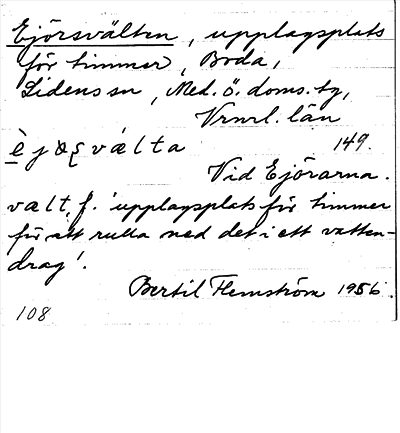 Ejörsvälten, upplagsplats
för timmer, Boda,
Lidens sn, Med. ö. doms. tg,
Vrnrl. län
149.
Vid Ejörarna.
valt, f. 'upplagsplats för timmer
för att rulla ned det i ett vatten-
drag'.
Bertil Flemström 1956.
108